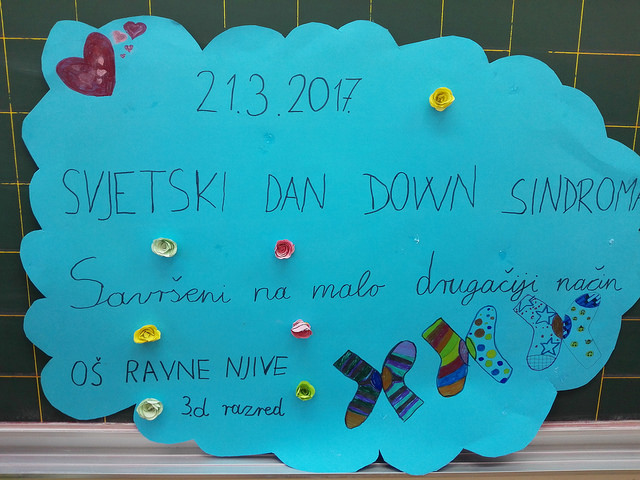 21.3.2017.
SVJETSKI DAN DOWN SINDROMA
Savršeni na malo drugačiji način
OŠ RAVNE NJIVE
3.d razred